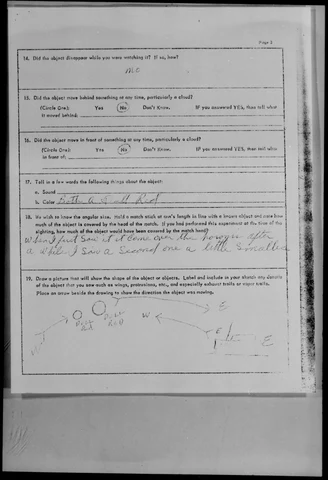 Page 3
14. Did the object disappear while you were watching it? If so, how?
no
15. Did the object move behind something at any time, particularly a cloud?
(Circle One): Yes No Don't Know. If you answered YES, then tell what
it moved behind:
16. Did the object move in front of something at any time, particularly a cloud?
(Circle One): Yes No Don't Know. If you answered YES, then tell what
in front of:
17. Tell in a few words the following things about the object:
a. Sound
b. Color Both Red
18. We wish to know the angular size. Hold a match stick at arm's length in line with a known object and note how
much of the object is covered by the head of the match. If you had performed this experiment at the time of the
sighting, how much of the object would have been covered by the match head?
When I first saw it it came over the houses after
a while I saw a second one a little smaller
19. Draw a picture that will show the shape of the object or objects. Label and include in your sketch any details
of the object that you saw such as wings, protrusions, etc., and especially exhaust trails or vapor trails.
Place an arrow beside the drawing to show the direction the object was moving.
E
W
E
E
Red
Red
W